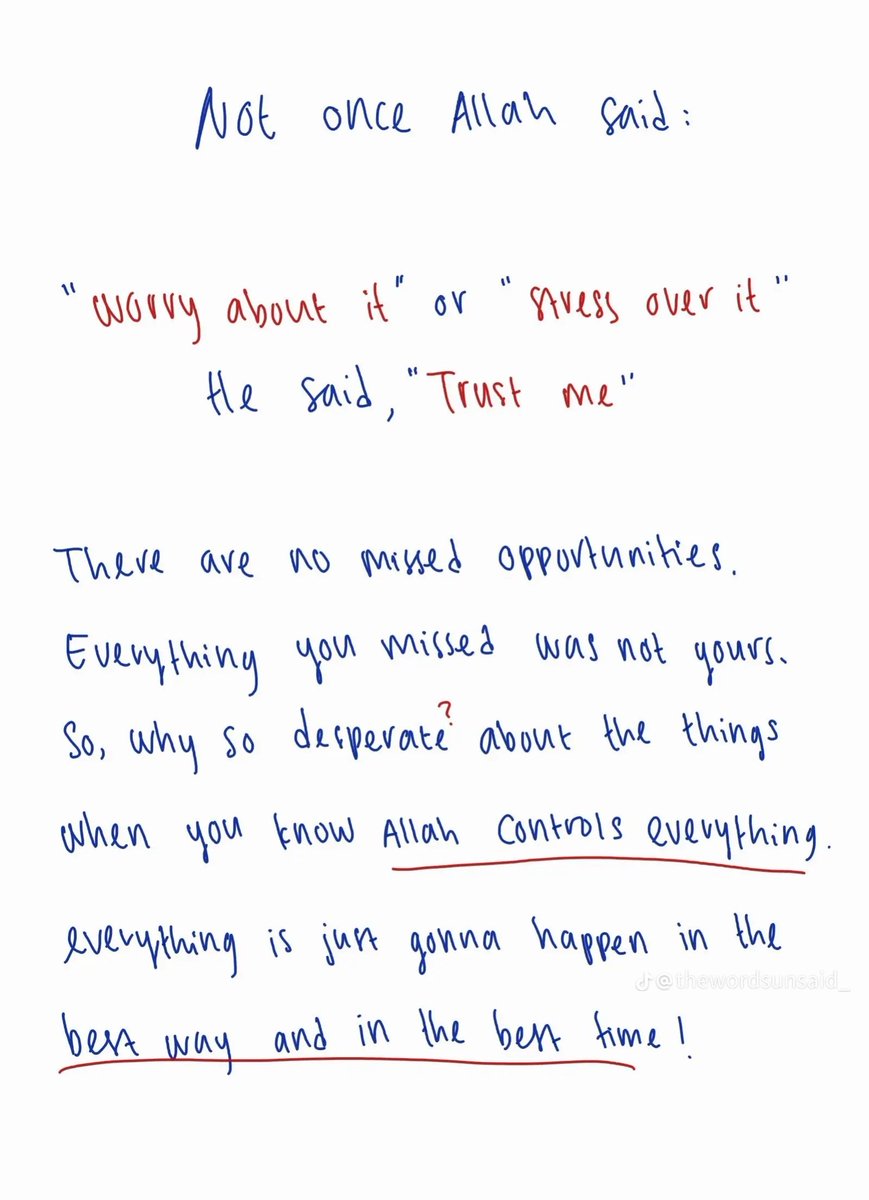 Not once Allah said:
"worry about it" or "stress over it"
He said, "Trust me"
There are no missed opportunities.
Everything you missed was not yours.
So, why so desperate? about the things
when you know Allah controls everything.
everything is just gonna happen in the
@thewordsunsaid_
best way and in the best time!